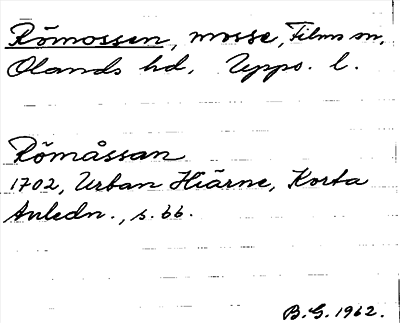 Römossen, mosse, Films sn,
Olands hd, Upps. l.
Römåssan
1702, Urban Hiärne, Korta
Anledn., s. 66.
B.G. 1962.